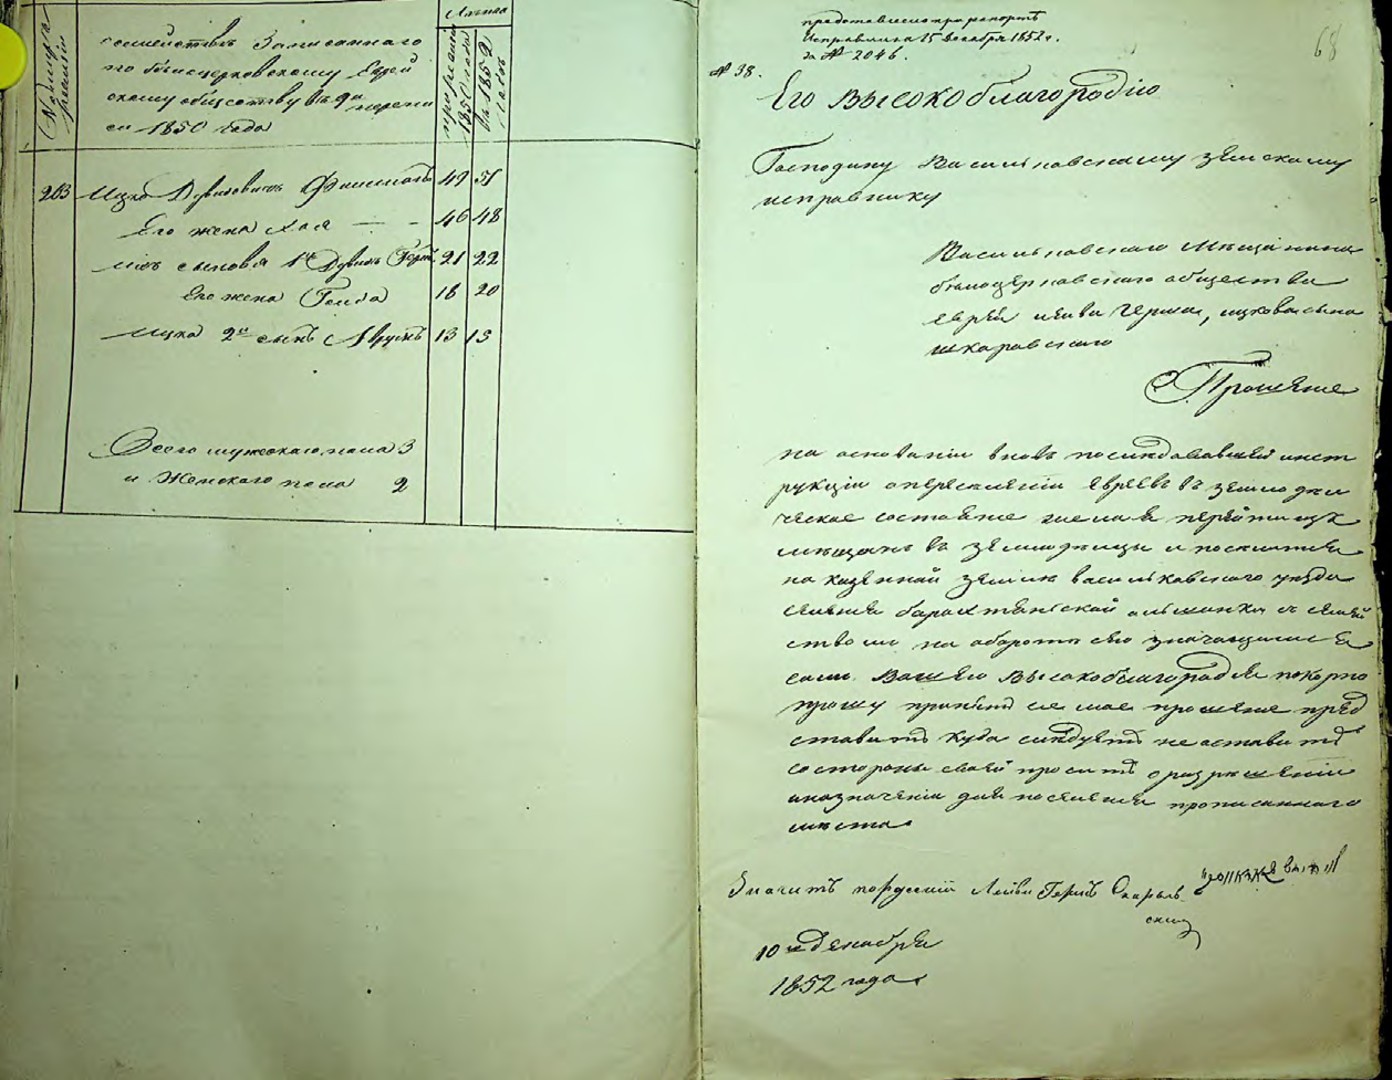 Нумера ревизіи
семействъ Записаннаго
по бѣлоцерковскому Еврей
скому обществу въ 9й
1850 года
Лѣта
по ревизіи 1850 года
въ 1852 годѣ
263 Ицко Дувидовичъ 49 51
Его жена Хая — - 46 48
ихъ сыновья 1й Дувидъ 21 22
Его жена Голда 18 20
Ицка 2й сынъ Арунъ 13 15
Всего мужескаго пола 3
и Женскаго пола 2
68
представлено при рапортѣ
Исправника 15 декабря 1852 г.
за № 2046.
№ 38.
Его Высокоблагородію
Господину Васильковскому земскому
исправнику
Васильковскаго Мѣщанина
бѣлоцерковскаго общества
еврея лейви Герша, ицкова сына
шкаровскаго
Прошеніе
на основаніи вновь послѣдовавшей инст
рукціи о переселеніи евреевъ въ земледѣл
ческое состояніе желая перейти изъ
мѣщанъ въ земледѣльцы и поселится
на казенной землѣ васильковскаго уезда
селенія барахтянской ольшанки с семей
ством на оборотѣ сего значащимся
Вашего Высокоблагородія покорно
прошу принять сіе мое прошеніе пред
ставить куда слѣдуетъ не оставить
со стороны своей просить о разрѣшеніи
и назначеніи для поселенія прописаннаго
мѣста.
Значитъ по русски Лейви Гершъ Скаровь
ский
10 декабря
1852 года